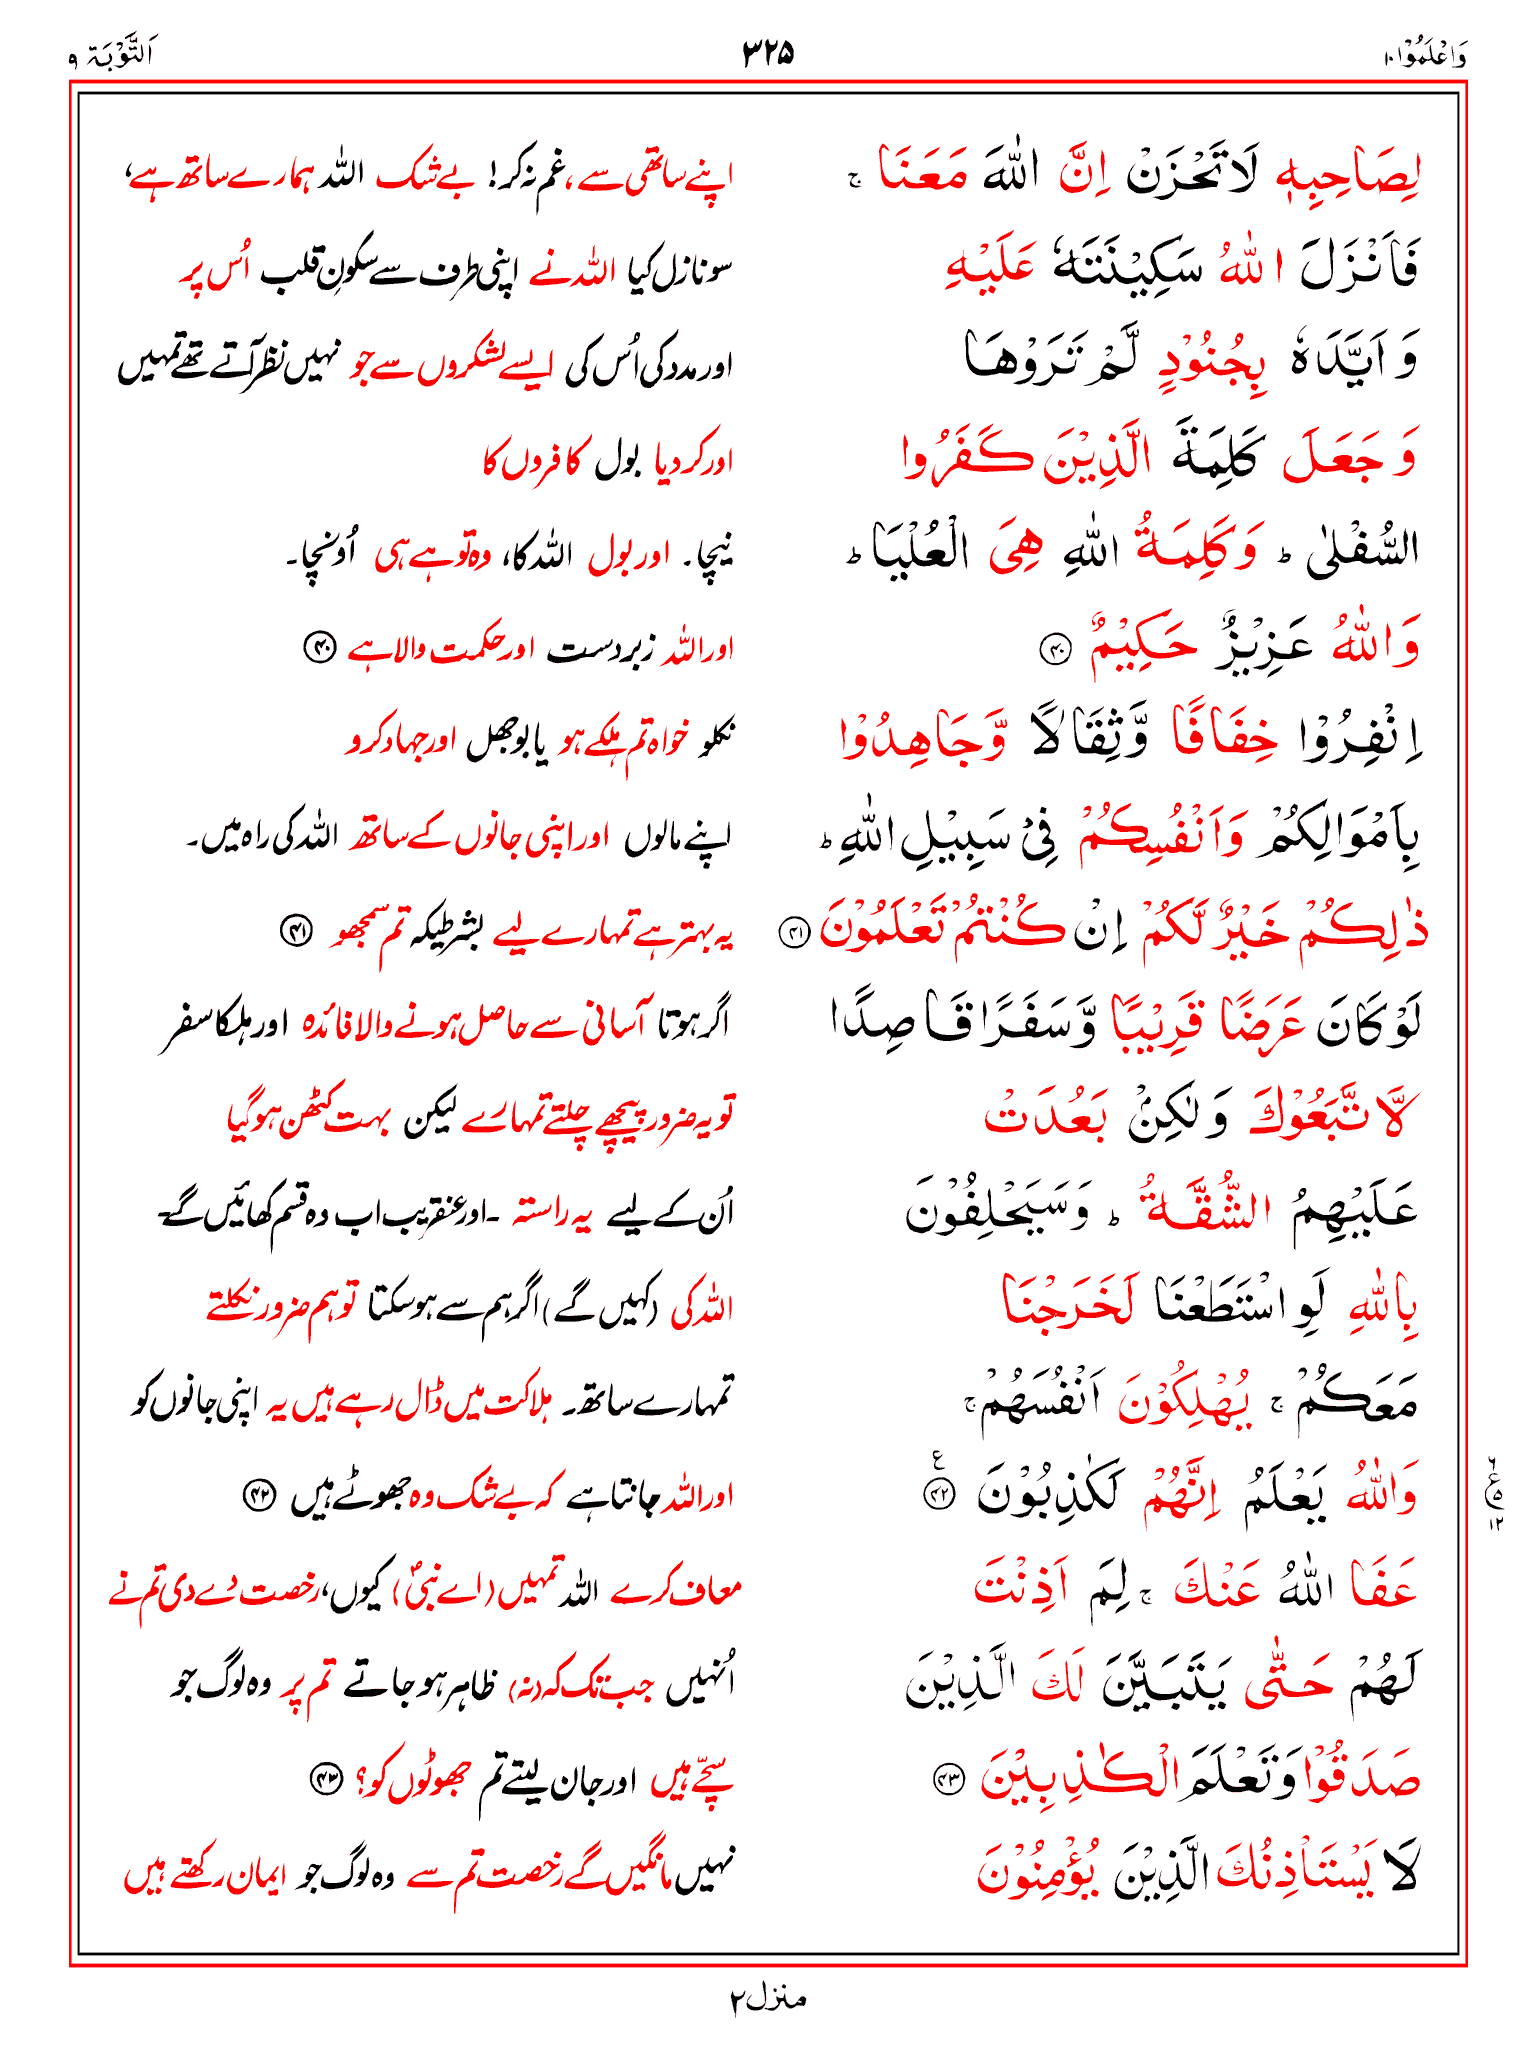 وَاعْلَمُوْا ۱۰ ۳۲۵ اَلتَّوْبَة ۹
لِصَاحِبِهٖ لَا تَحْزَنْ اِنَّ اللّٰهَ مَعَنَا ۚ اپنے ساتھی سے، غم نہ کر! بے شک اللہ ہمارے ساتھ ہے،
فَاَنْزَلَ اللّٰهُ سَكِيْنَتَهٗ عَلَيْهِ سو نازل کیا اللہ نے اپنی طرف سے سکونِ قلب اُس پر
وَ اَيَّدَهٗ بِجُنُوْدٍ لَّمْ تَرَوْهَا اور مدد کی اُس کی ایسے لشکروں سے جو نہیں نظر آتے تھے تمہیں
وَ جَعَلَ كَلِمَةَ الَّذِيْنَ كَفَرُوا اور کر دیا بول کافروں کا
السُّفْلٰى ؕ وَكَلِمَةُ اللّٰهِ هِيَ الْعُلْيَا ؕ نیچا۔ اور بول اللہ کا، وہ تو ہے ہی اُونچا۔
وَاللّٰهُ عَزِيْزٌ حَكِيْمٌ ۴۰ اور اللہ زبردست اور حکمت والا ہے ۴۰
اِنْفِرُوْا خِفَافًا وَّثِقَالًا وَّجَاهِدُوْا نکلو خواہ تم ہلکے ہو یا بوجھل اور جہاد کرو
بِاَمْوَالِكُمْ وَاَنْفُسِكُمْ فِيْ سَبِيْلِ اللّٰهِ ؕ اپنے مالوں اور اپنی جانوں کے ساتھ اللہ کی راہ میں۔
ذٰلِكُمْ خَيْرٌ لَّكُمْ اِنْ كُنْتُمْ تَعْلَمُوْنَ ۴۱ یہ بہتر ہے تمہارے لیے بشرطیکہ تم سمجھو ۴۱
لَوْ كَانَ عَرَضًا قَرِيْبًا وَّسَفَرًا قَاصِدًا اگر ہوتا آسانی سے حاصل ہونے والا فائدہ اور ہلکا سفر
لَّا تَّبَعُوْكَ وَلٰكِنْۢ بَعُدَتْ تو یہ ضرور پیچھے چلتے تمہارے لیکن بہت کٹھن ہو گیا
عَلَيْهِمُ الشُّقَّةُ ؕ وَسَيَحْلِفُوْنَ اُن کے لیے یہ راستہ ۔اور عنقریب اب وہ قسم کھائیں گے۔
بِاللّٰهِ لَوِ اسْتَطَعْنَا لَخَرَجْنَا اللہ کی (کہیں گے) اگر ہم سے ہو سکتا تو ہم ضرور نکلتے
مَعَكُمْ ۚ يُهْلِكُوْنَ اَنْفُسَهُمْ ۚ تمہارے ساتھ۔ ہلاکت میں ڈال رہے ہیں یہ اپنی جانوں کو
وَاللّٰهُ يَعْلَمُ اِنَّهُمْ لَكٰذِبُوْنَ ۴۲ ع اور اللہ جانتا ہے کہ بے شک وہ جھوٹے ہیں ۴۲
۶ ع ۵ ۱۲
عَفَا اللّٰهُ عَنْكَ ۚ لِمَ اَذِنْتَ معاف کرے اللہ تمہیں (اے نبیؐ) کیوں، رخصت دے دی تم نے
لَهُمْ حَتّٰى يَتَبَيَّنَ لَكَ الَّذِيْنَ اُنہیں جب تک کہ (نہ) ظاہر ہو جاتے تم پر وہ لوگ جو
صَدَقُوْا وَتَعْلَمَ الْكٰذِبِيْنَ ۴۳ سچّے ہیں اور جان لیتے تم جھوٹوں کو؟ ۴۳
لَا يَسْتَاْذِنُكَ الَّذِيْنَ يُؤْمِنُوْنَ نہیں مانگیں گے رخصت تم سے وہ لوگ جو ایمان رکھتے ہیں
منزل ۲